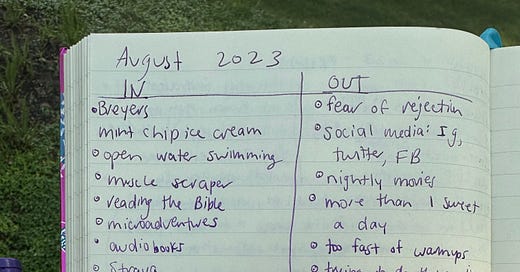 August 2023
IN
• Breyers
mint chip ice cream
• open water swimming
• muscle scraper
• reading the Bible
• microadventures
• audiobooks
• Strava
OUT
• fear of rejection
• social media: Ig,
twitter, FB
• nightly movies
• more than 1 sweet
a day
• too fast of warmups
• trying to do